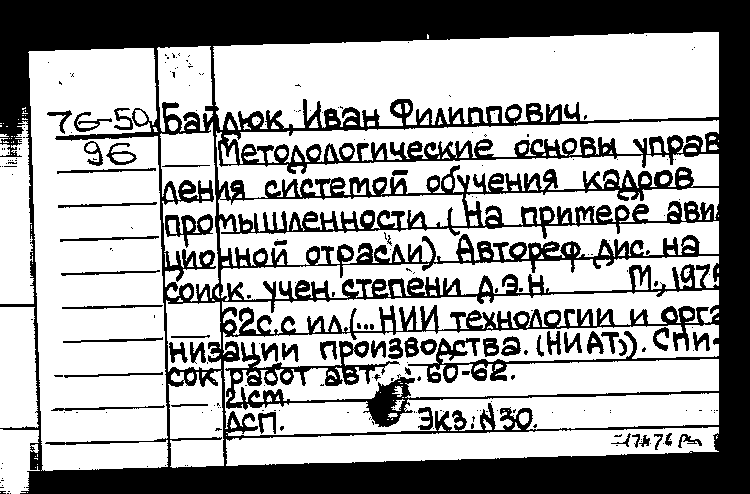 76-50 Байдюк, Иван Филиппович.
96 Методологические основы управ
ления системой обучения кадров
промышленности. (На примере авиа
ционной отрасли). Автореф. дис. на
соиск. учен. степени д.э.н. М., 197
62с. с ил. (... НИИ технологии и орга
низации производства. (НИАТ)). Спи-
сок работ авт. с. 60-62.
21см.
ДСП. Экз. N30.